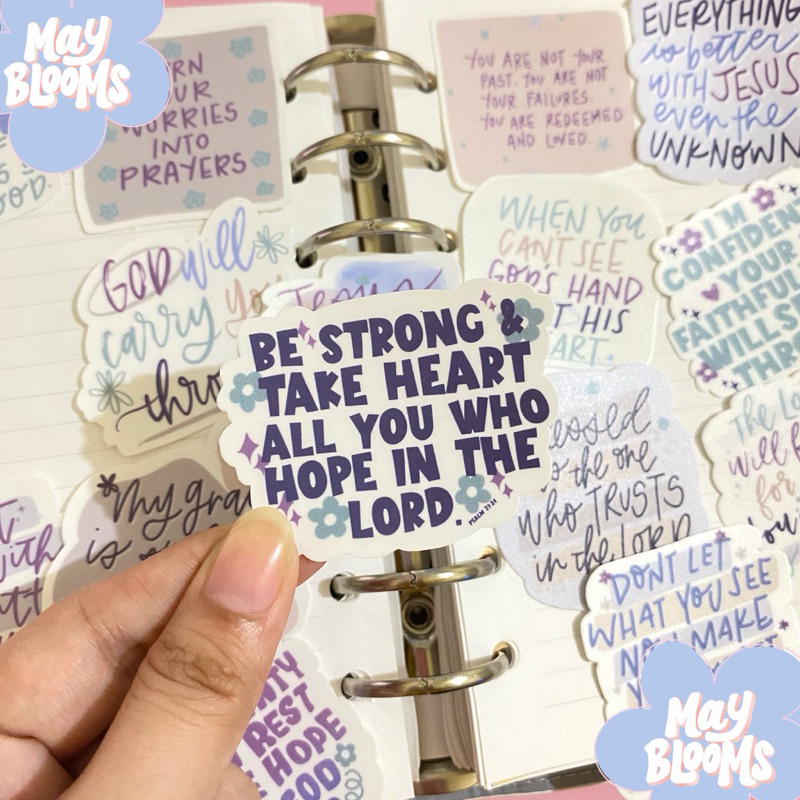 May
BLOOMS
URN
YOUR
WORRIES
INTO
PRAYERS
YOU ARE NOT YOUR
PAST. YOU ARE NOT
YOUR FAILURES.
YOU ARE REDEEMED
AND LOVED.
EVERYTHING
is better
WITH JESUS
even the
UNKNOWN
GOD will
carry you
WHEN YOU
CAN'T SEE
GOD'S HAND
HIS
I'M
CONFIDENT
YOUR
FAITHFUL
WILL SE
THRO
Jesus
BE STRONG &
TAKE HEART
ALL YOU WHO
HOPE IN THE
LORD.
PSALM 31:24
the one
who TRUSTS
in the LORD
The Lo
will
for
My gra
is
with
DONT LET
WHAT YOU SEE
NOW MAKE
REST
HOPE
GOD
May
BLOOMS